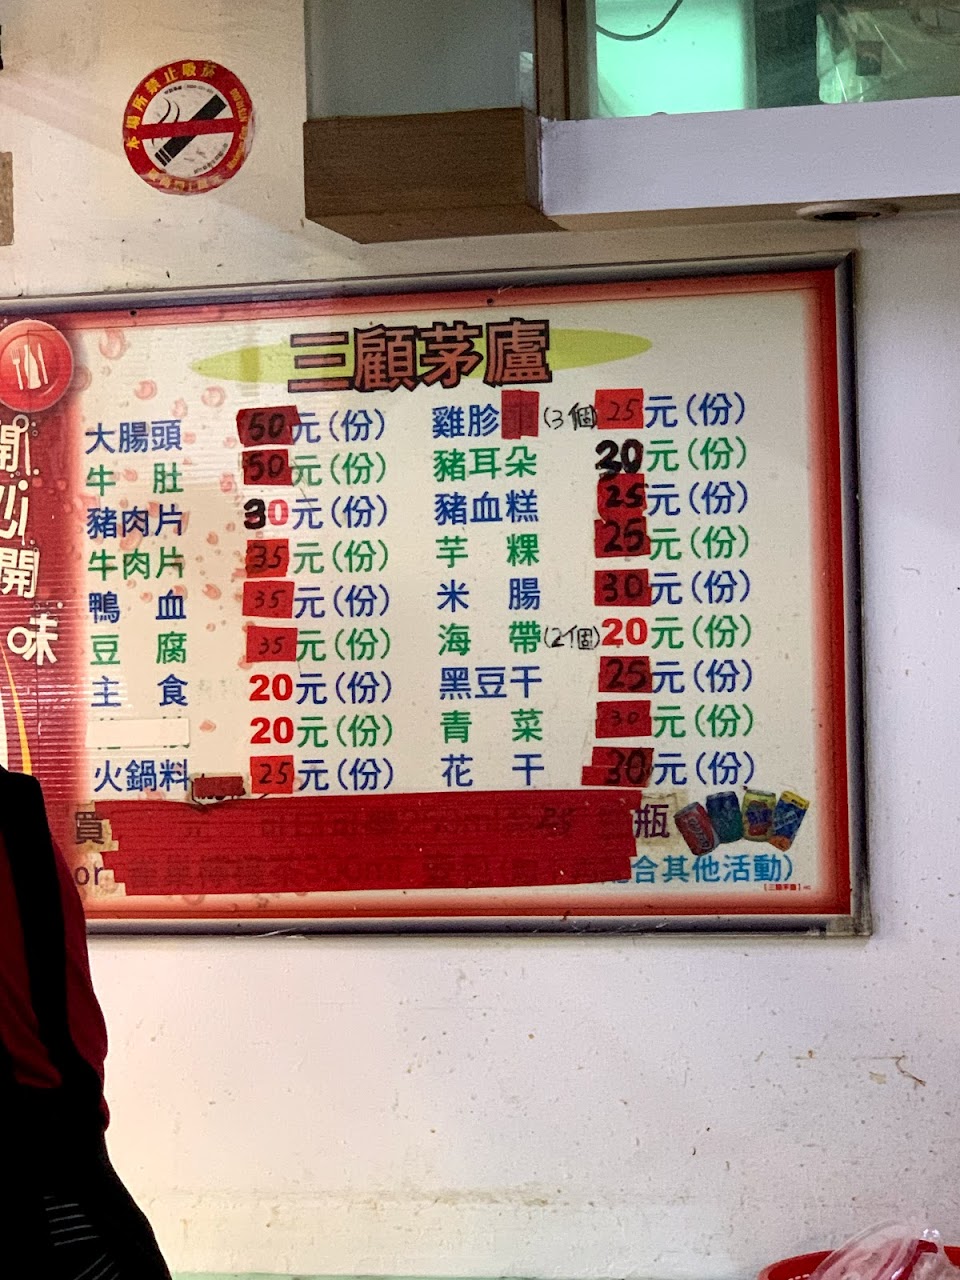 本場所禁止吸菸
三顧茅廬
開
心
開
味
大腸頭 50元(份)
牛肚 50元(份)
豬肉片 30元(份)
牛肉片 35元(份)
鴨血 35元(份)
豆腐 35元(份)
主食 20元(份)
20元(份)
火鍋料 25元(份)
雞胗(3個) 25元(份)
豬耳朵 30元(份)
豬血糕 25元(份)
芋粿 25元(份)
米腸 30元(份)
海帶(2個) 20元(份)
黑豆干 25元(份)
青菜 30元(份)
花干 30元(份)
買 元 瓶
or 合其他活動)
[三顧茅廬]